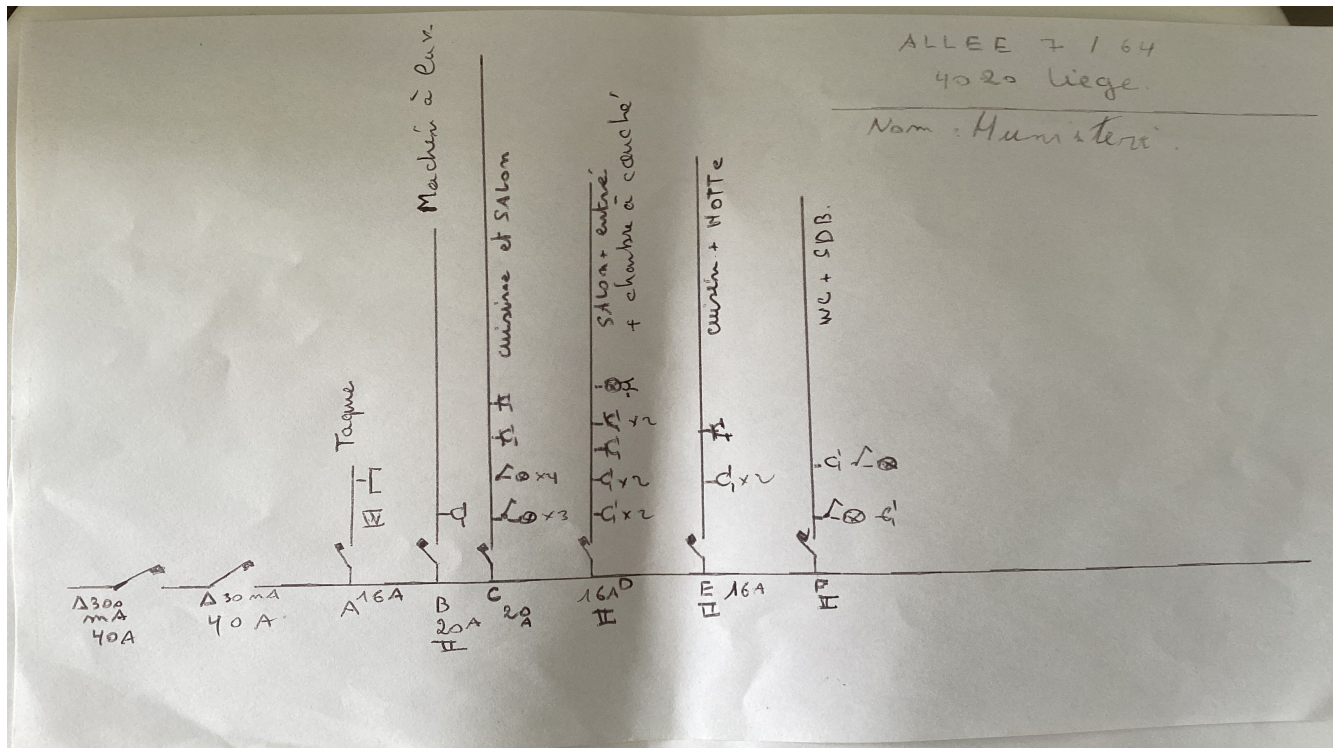 ALLEE 7 / 64
4020 Liege.
Nom : Munisteri.
Taque
Machin à lav.
cuisine et SALON
SALON + entré
+ chambre à couché
cuisin + HOTTE
WC + SDB.
x4
x3
x2
x2
x2
x2
Δ300
mA
40A
Δ30mA
40A
A 16A
B
20A
II
C
20
A
16A D
II
E 16A
II
F
II